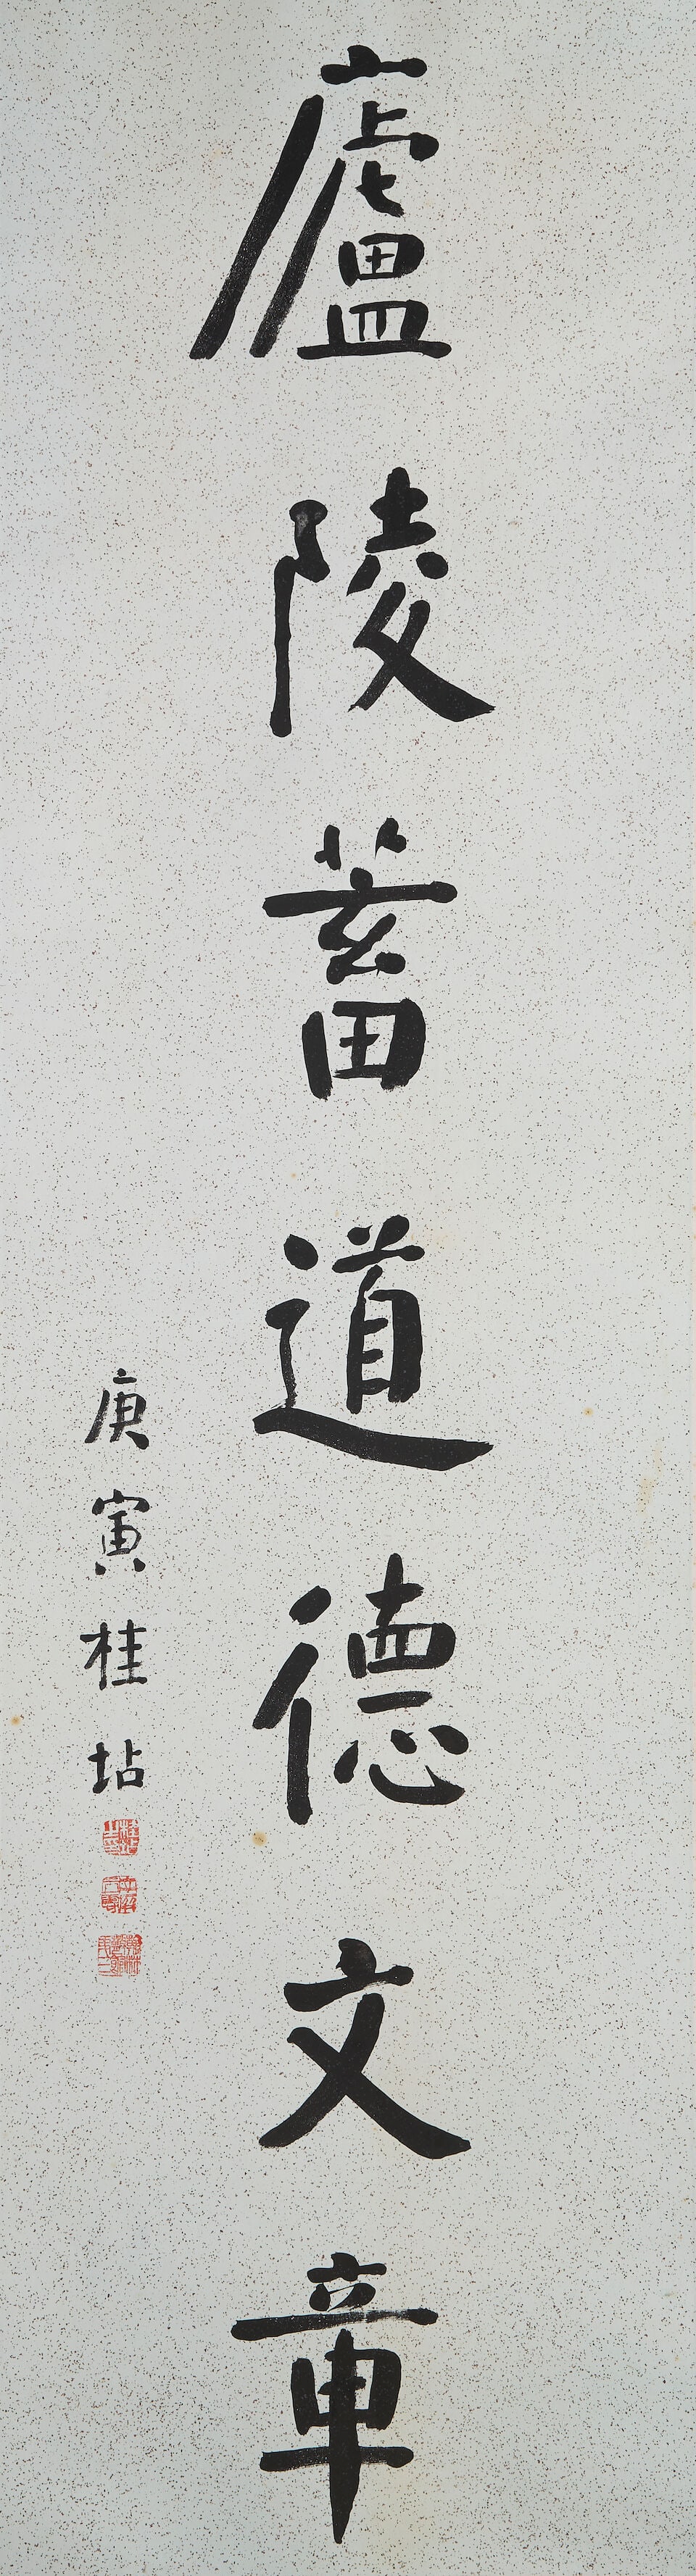 廬陵蓄道德文章
庚寅桂坫